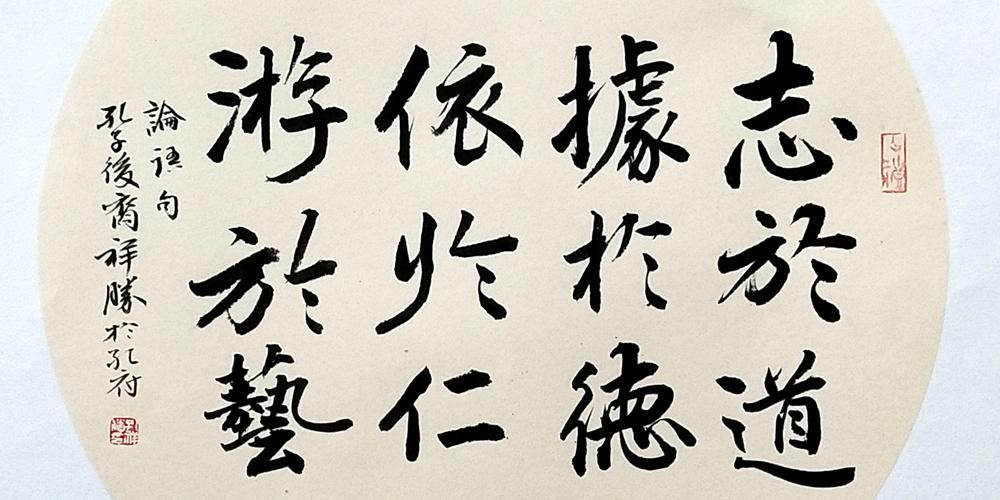 志於道
據於德
依於仁
游於藝
論語句
孔子後裔祥勝於孔府